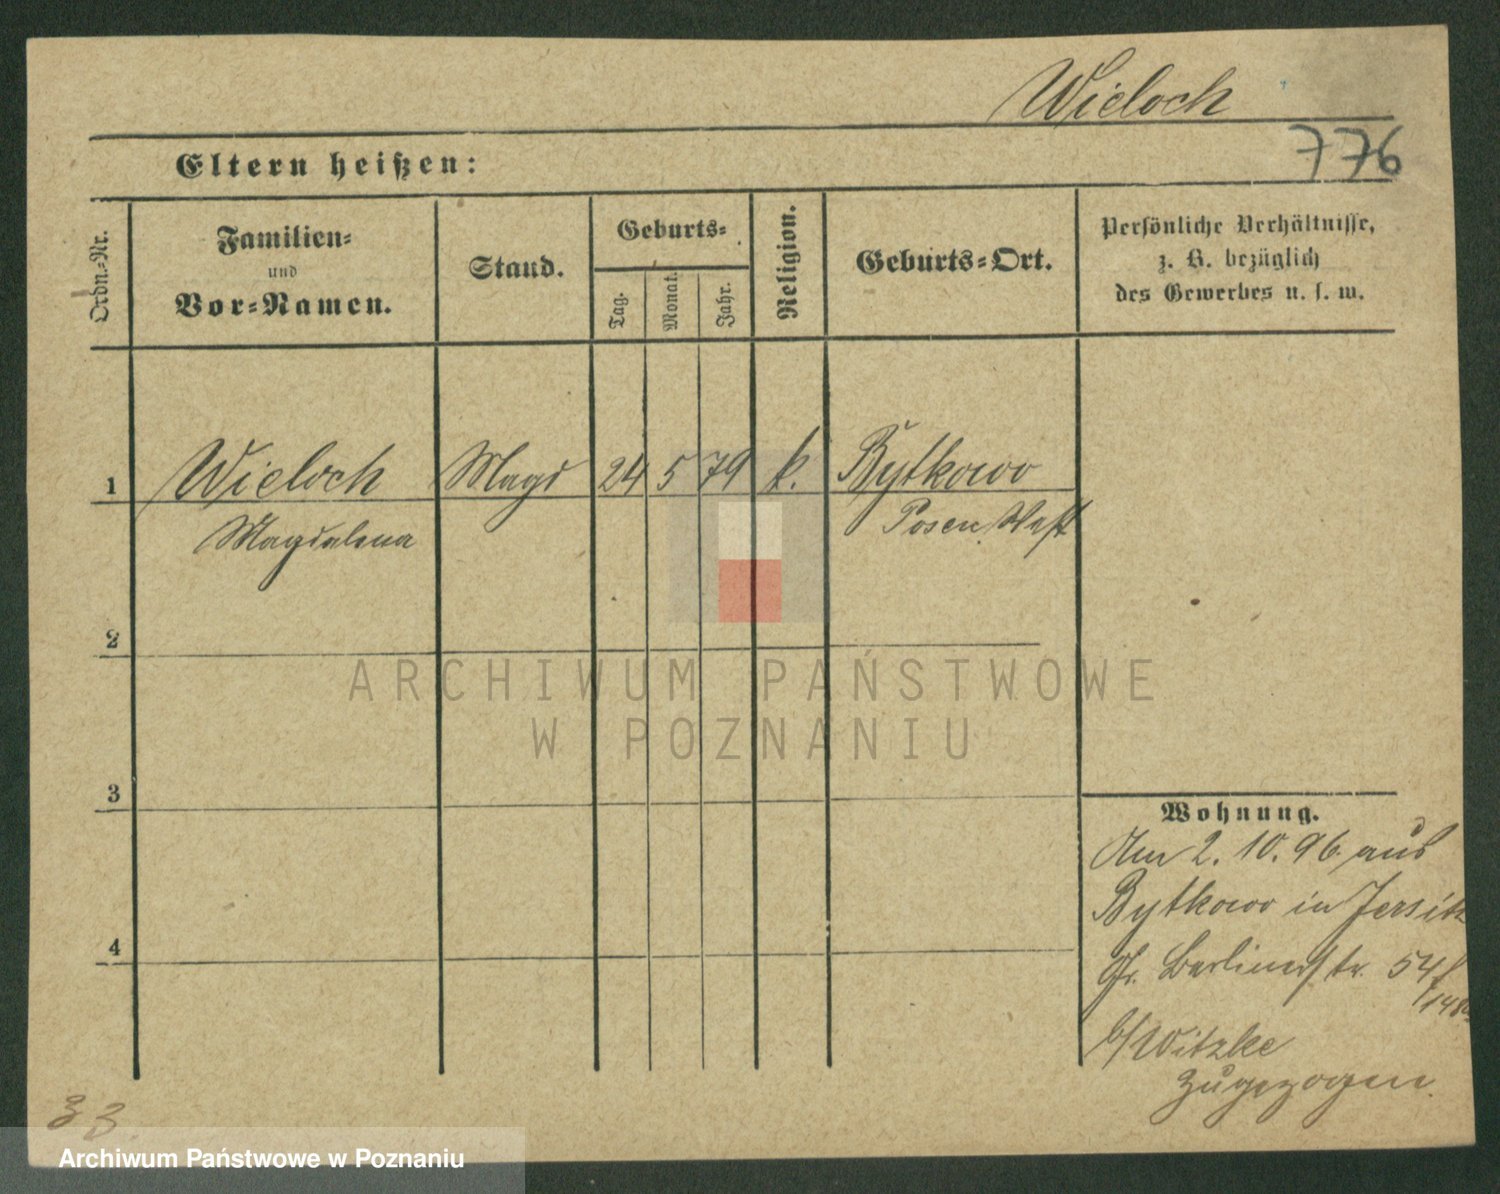 Wieloch
776
Eltern heißen:
Ordn.-Nr.
Familien-
und
Vor-Namen.
Stand.
Geburts-
Tag.
Monat.
Jahr.
Religion.
Geburts-Ort.
Persönliche Verhältnisse,
z. B. bezüglich
des Gewerbes u. s. w.
1 Wieloch Magd 24 5 79 k. Bytkowo
Magdalena Posen West
2
3
4
Wohnung.
Am 2. 10. 96. aus
Bytkowo in Jersitz
Gr. Berlinerstr. 54
b/Witzke
zugezogen.
ARCHIWUM PAŃSTWOWE
W POZNANIU
Archiwum Państwowe w Poznaniu